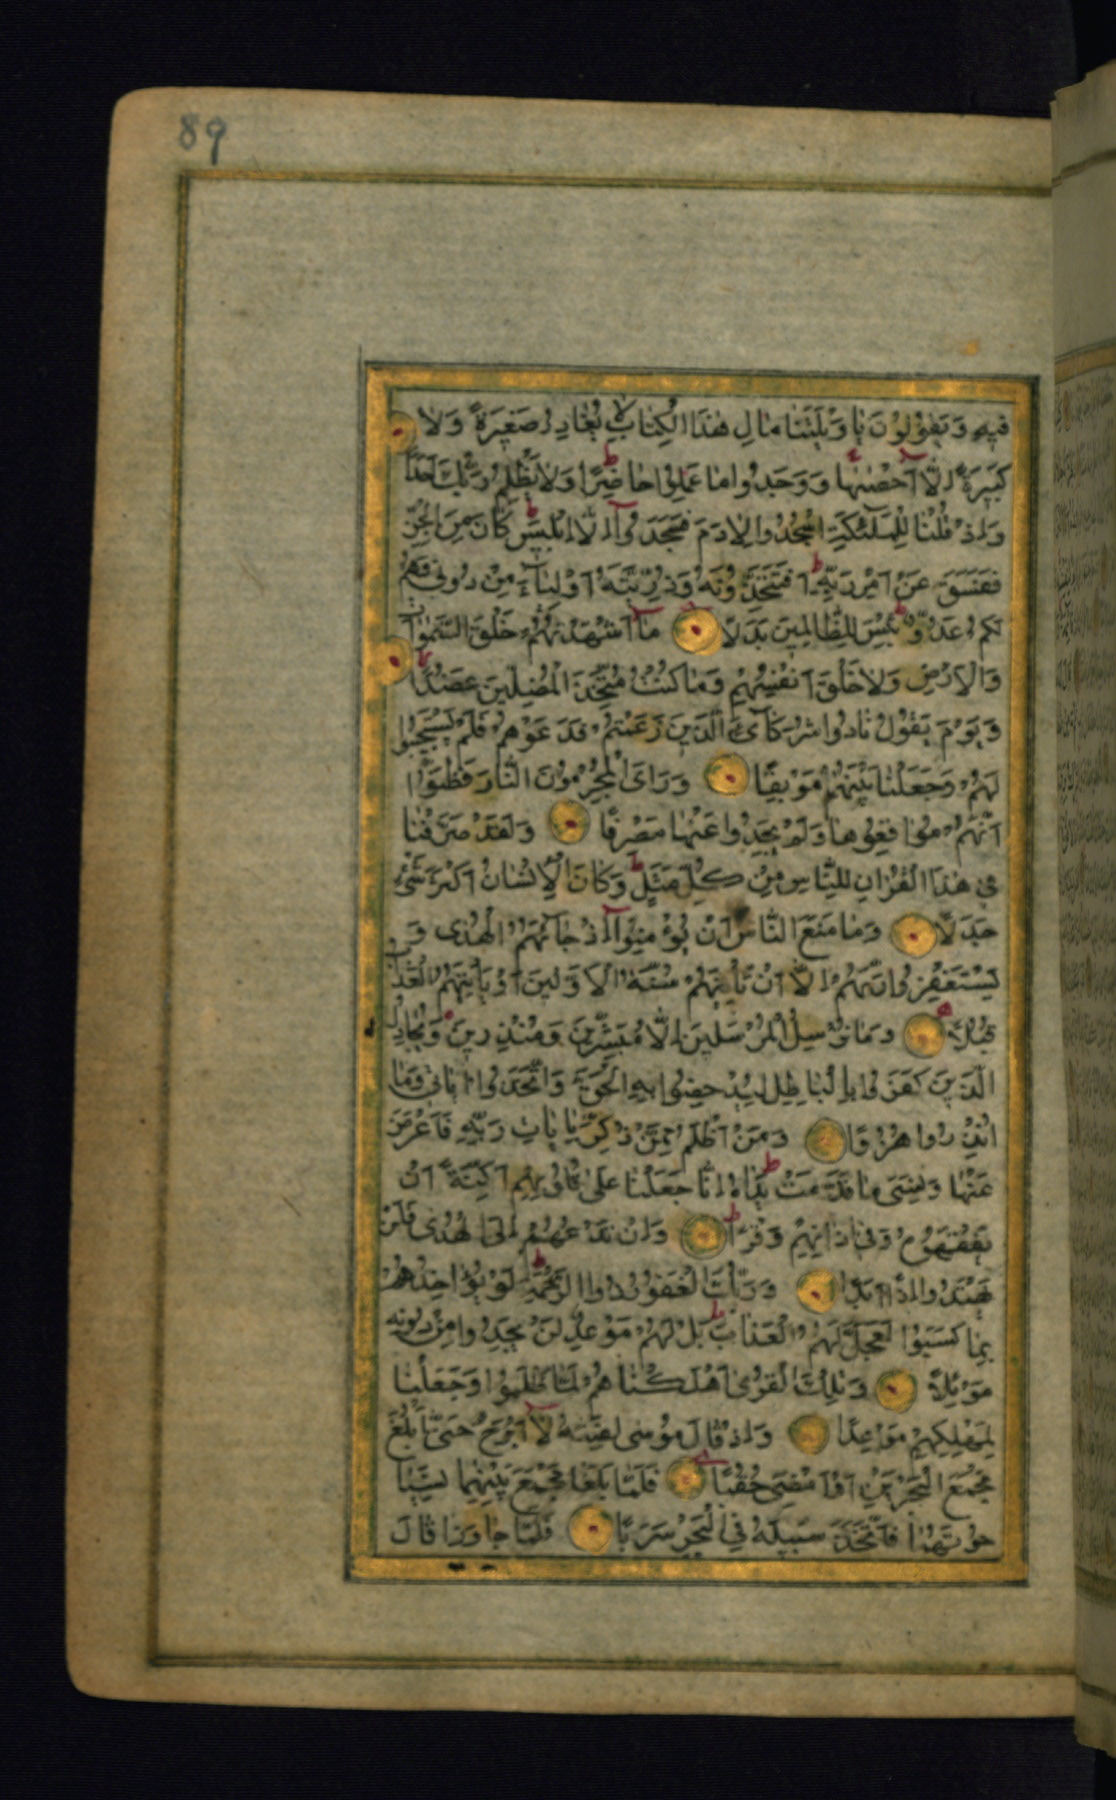 89
فيه وَيَقُولُونَ يَا وَيْلَتَنَا مَالِ هٰذَا الْكِتَابِ لَا يُغَادِرُ صَغِيرَةً وَلَا
كَبِيرَةً اِلَّا اَحْصٰيهَا وَوَجَدُوا مَا عَمِلُوا حَاضِرًا وَلَا يَظْلِمُ رَبُّكَ اَحَدًا
وَاِذْ قُلْنَا لِلْمَلٰئِكَةِ اسْجُدُوا لِاٰدَمَ فَسَجَدُوا اِلَّا اِبْلِيسَ كَانَ مِنَ الْجِنِّ
فَفَسَقَ عَنْ اَمْرِ رَبِّهِ اَفَتَتَّخِذُونَهُ وَذُرِّيَّتَهُ اَوْلِيَاءَ مِنْ دُونِي وَهُمْ
لَكُمْ عَدُوٌّ بِئْسَ لِلظَّالِمِينَ بَدَلًا مَا اَشْهَدْتُهُمْ خَلْقَ السَّمٰوَاتِ
وَالْاَرْضِ وَلَا خَلْقَ اَنْفُسِهِمْ وَمَا كُنْتُ مُتَّخِذَ الْمُضِلِّينَ عَضُدًا
وَيَوْمَ يَقُولُ نَادُوا شُرَكَائِيَ الَّذِينَ زَعَمْتُمْ فَدَعَوْهُمْ فَلَمْ يَسْتَجِيبُوا
لَهُمْ وَجَعَلْنَا بَيْنَهُمْ مَوْبِقًا وَرَاَى الْمُجْرِمُونَ النَّارَ فَظَنُّوا
اَنَّهُمْ مُوَاقِعُوهَا وَلَمْ يَجِدُوا عَنْهَا مَصْرِفًا وَلَقَدْ صَرَّفْنَا
فِي هٰذَا الْقُرْاٰنِ لِلنَّاسِ مِنْ كُلِّ مَثَلٍ وَكَانَ الْاِنْسَانُ اَكْثَرَ شَيْءٍ
جَدَلًا وَمَا مَنَعَ النَّاسَ اَنْ يُؤْمِنُوا اِذْ جَاءَهُمُ الْهُدٰى وَ
يَسْتَغْفِرُوا رَبَّهُمْ اِلَّا اَنْ تَأْتِيَهُمْ سُنَّةُ الْاَوَّلِينَ اَوْ يَأْتِيَهُمُ الْعَذَابُ
قُبُلًا وَمَا نُرْسِلُ الْمُرْسَلِينَ اِلَّا مُبَشِّرِينَ وَمُنْذِرِينَ وَيُجَادِلُ
الَّذِينَ كَفَرُوا بِالْبَاطِلِ لِيُدْحِضُوا بِهِ الْحَقَّ وَاتَّخَذُوا اٰيَاتِي وَمَا
اُنْذِرُوا هُزُوًا وَمَنْ اَظْلَمُ مِمَّنْ ذُكِّرَ بِاٰيَاتِ رَبِّهِ فَاَعْرَضَ
عَنْهَا وَنَسِيَ مَا قَدَّمَتْ يَدَاهُ اِنَّا جَعَلْنَا عَلٰى قُلُوبِهِمْ اَكِنَّةً اَنْ
يَفْقَهُوهُ وَفِي اٰذَانِهِمْ وَقْرًا وَاِنْ تَدْعُهُمْ اِلَى الْهُدٰى فَلَنْ
يَهْتَدُوا اِذًا اَبَدًا وَرَبُّكَ الْغَفُورُ ذُوا الرَّحْمَةِ لَوْ يُؤَاخِذُهُمْ
بِمَا كَسَبُوا لَعَجَّلَ لَهُمُ الْعَذَابَ بَلْ لَهُمْ مَوْعِدٌ لَنْ يَجِدُوا مِنْ دُونِهِ
مَوْئِلًا وَتِلْكَ الْقُرٰى اَهْلَكْنَاهُمْ لَمَّا ظَلَمُوا وَجَعَلْنَا
لِمَهْلِكِهِمْ مَوْعِدًا وَاِذْ قَالَ مُوسٰى لِفَتٰيهُ لَا اَبْرَحُ حَتّٰى اَبْلُغَ
مَجْمَعَ الْبَحْرَيْنِ اَوْ اَمْضِيَ حُقُبًا فَلَمَّا بَلَغَا مَجْمَعَ بَيْنِهِمَا نَسِيَا
حُوتَهُمَا فَاتَّخَذَ سَبِيلَهُ فِي الْبَحْرِ سَرَبًا فَلَمَّا جَاوَزَا قَالَ